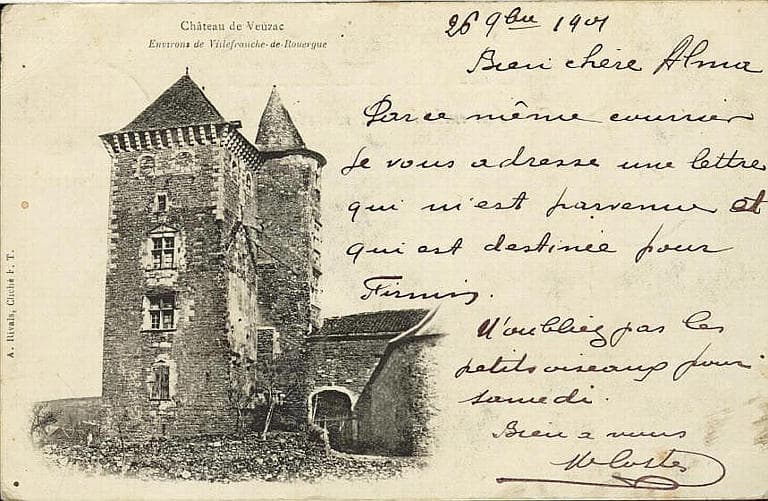 Château de Veuzac
Environs de Villefranche-de-Rouergue
A. Rivals, Cliché F. T.
26 9bre 1901
Bien chère Alma
Par ce même courrier
Je vous adresse une lettre
qui m'est parvenue et
qui est destinée pour
Firmin.
N'oubliez pas les
petits oiseaux pour
samedi.
Bien a vous